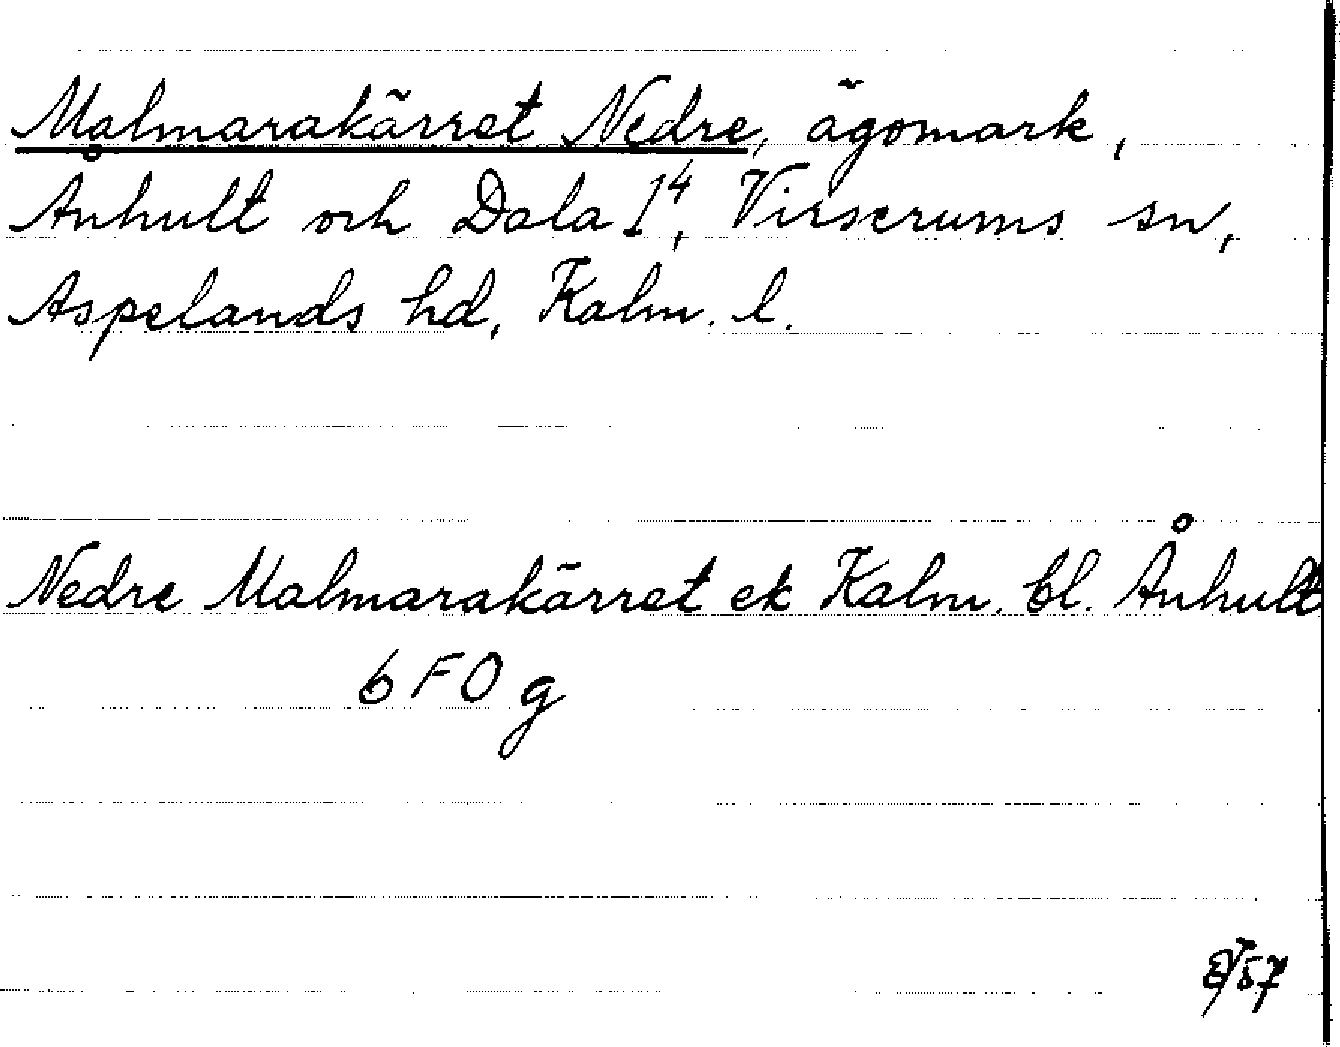 Malmarakärret Nedre, ägomark,
Ånhult och Dala 1⁴, Virserums sn,
Aspelands hd, Kalm. l.
Nedre Malmarakärret ek Kalm. bl. Ånhult
6 F 0 g